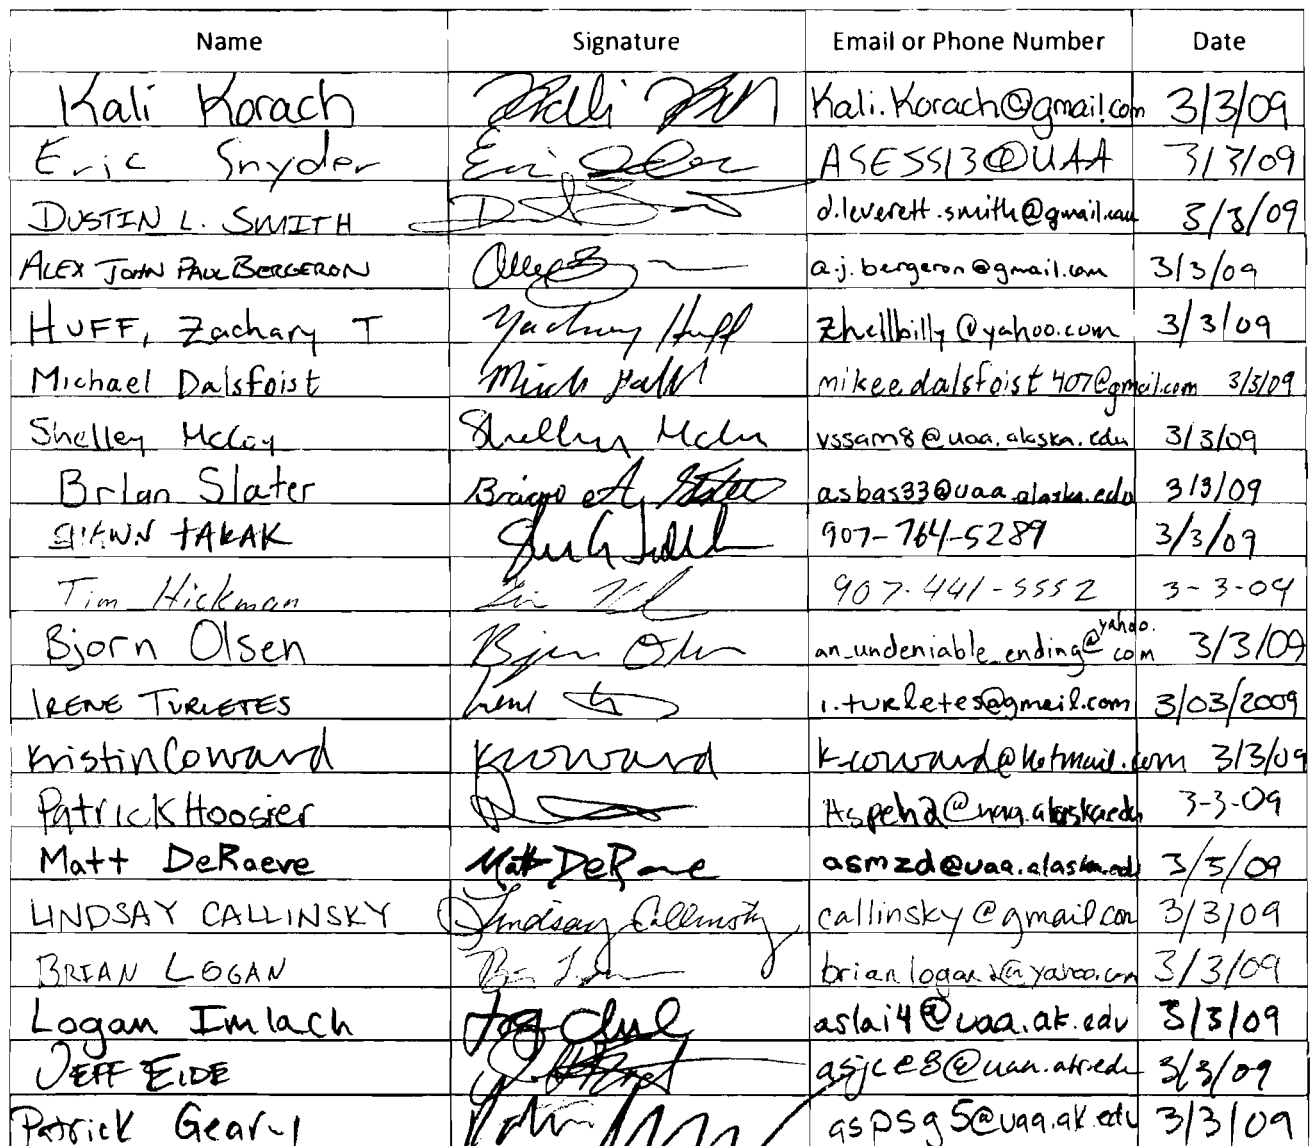 Name Signature Email or Phone Number Date
Kali Korach Kali.Korach@gmail.com 3/3/09
Eric Snyder ASESS13@UAA 3/3/09
DUSTIN L. SMITH d.leverett.smith@gmail.com 3/3/09
ALEX JOHN PAUL BERGERON a.j.bergeron@gmail.com 3/3/09
HUFF, Zachary T Zachary Huff zhellbilly@yahoo.com 3/3/09
Michael Dalsfoist mikee.dalsfoist407@gmail.com 3/3/09
Shelley McCoy vssam8@uaa.alaska.edu 3/3/09
Brian Slater asbas33@uaa.alaska.edu 3/3/09
SHAWN TAKAK 907-764-5289 3/3/09
Tim Hickman 907-441-5552 3-3-09
Bjorn Olsen Bjorn Olsen an_undeniable_ending@yahoo.com 3/3/09
IRENE TURLETES i.turletes@gmail.com 3/03/2009
Kristin Coward KCoward k-coward@hotmail.com 3/3/09
Patrick Hoosier Aspeh2@uaa.alaska.edu 3-3-09
Matt DeRaeve Matt DeRaeve asmzd@uaa.alaska.edu 3/3/09
LINDSAY CALLINSKY Lindsay Callinsky callinsky@gmail.com 3/3/09
BRIAN LOGAN 3/3/09
Logan Imlach aslai4@uaa.ak.edu 3/3/09
JEFF EIDE asjce8@uaa.ak.edu 3/3/09
Patrick Geary aspsg5@uaa.ak.edu 3/3/09